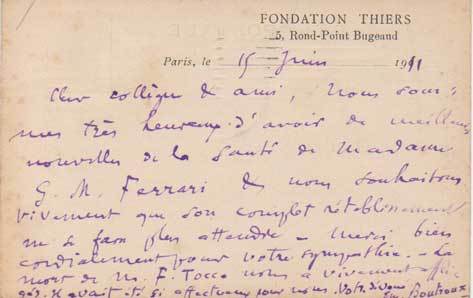 FONDATION THIERS
5, Rond-Point Bugeaud
Paris, le 15 Juin 1911
Cher collègue & ami, Nous som-
mes très heureux d'avoir de meilleures
nouvelles de la santé de Madame
G. M. Ferrari & nous souhaitons
vivement que son complet rétablissement
ne se fasse plus attendre – Merci bien
cordialement pour votre sympathie. – La
mort de M. F. Tocco nous a vivement affli-
gés. Il avait été si affectueux pour nous. Votre dévoué
Em Boutroux